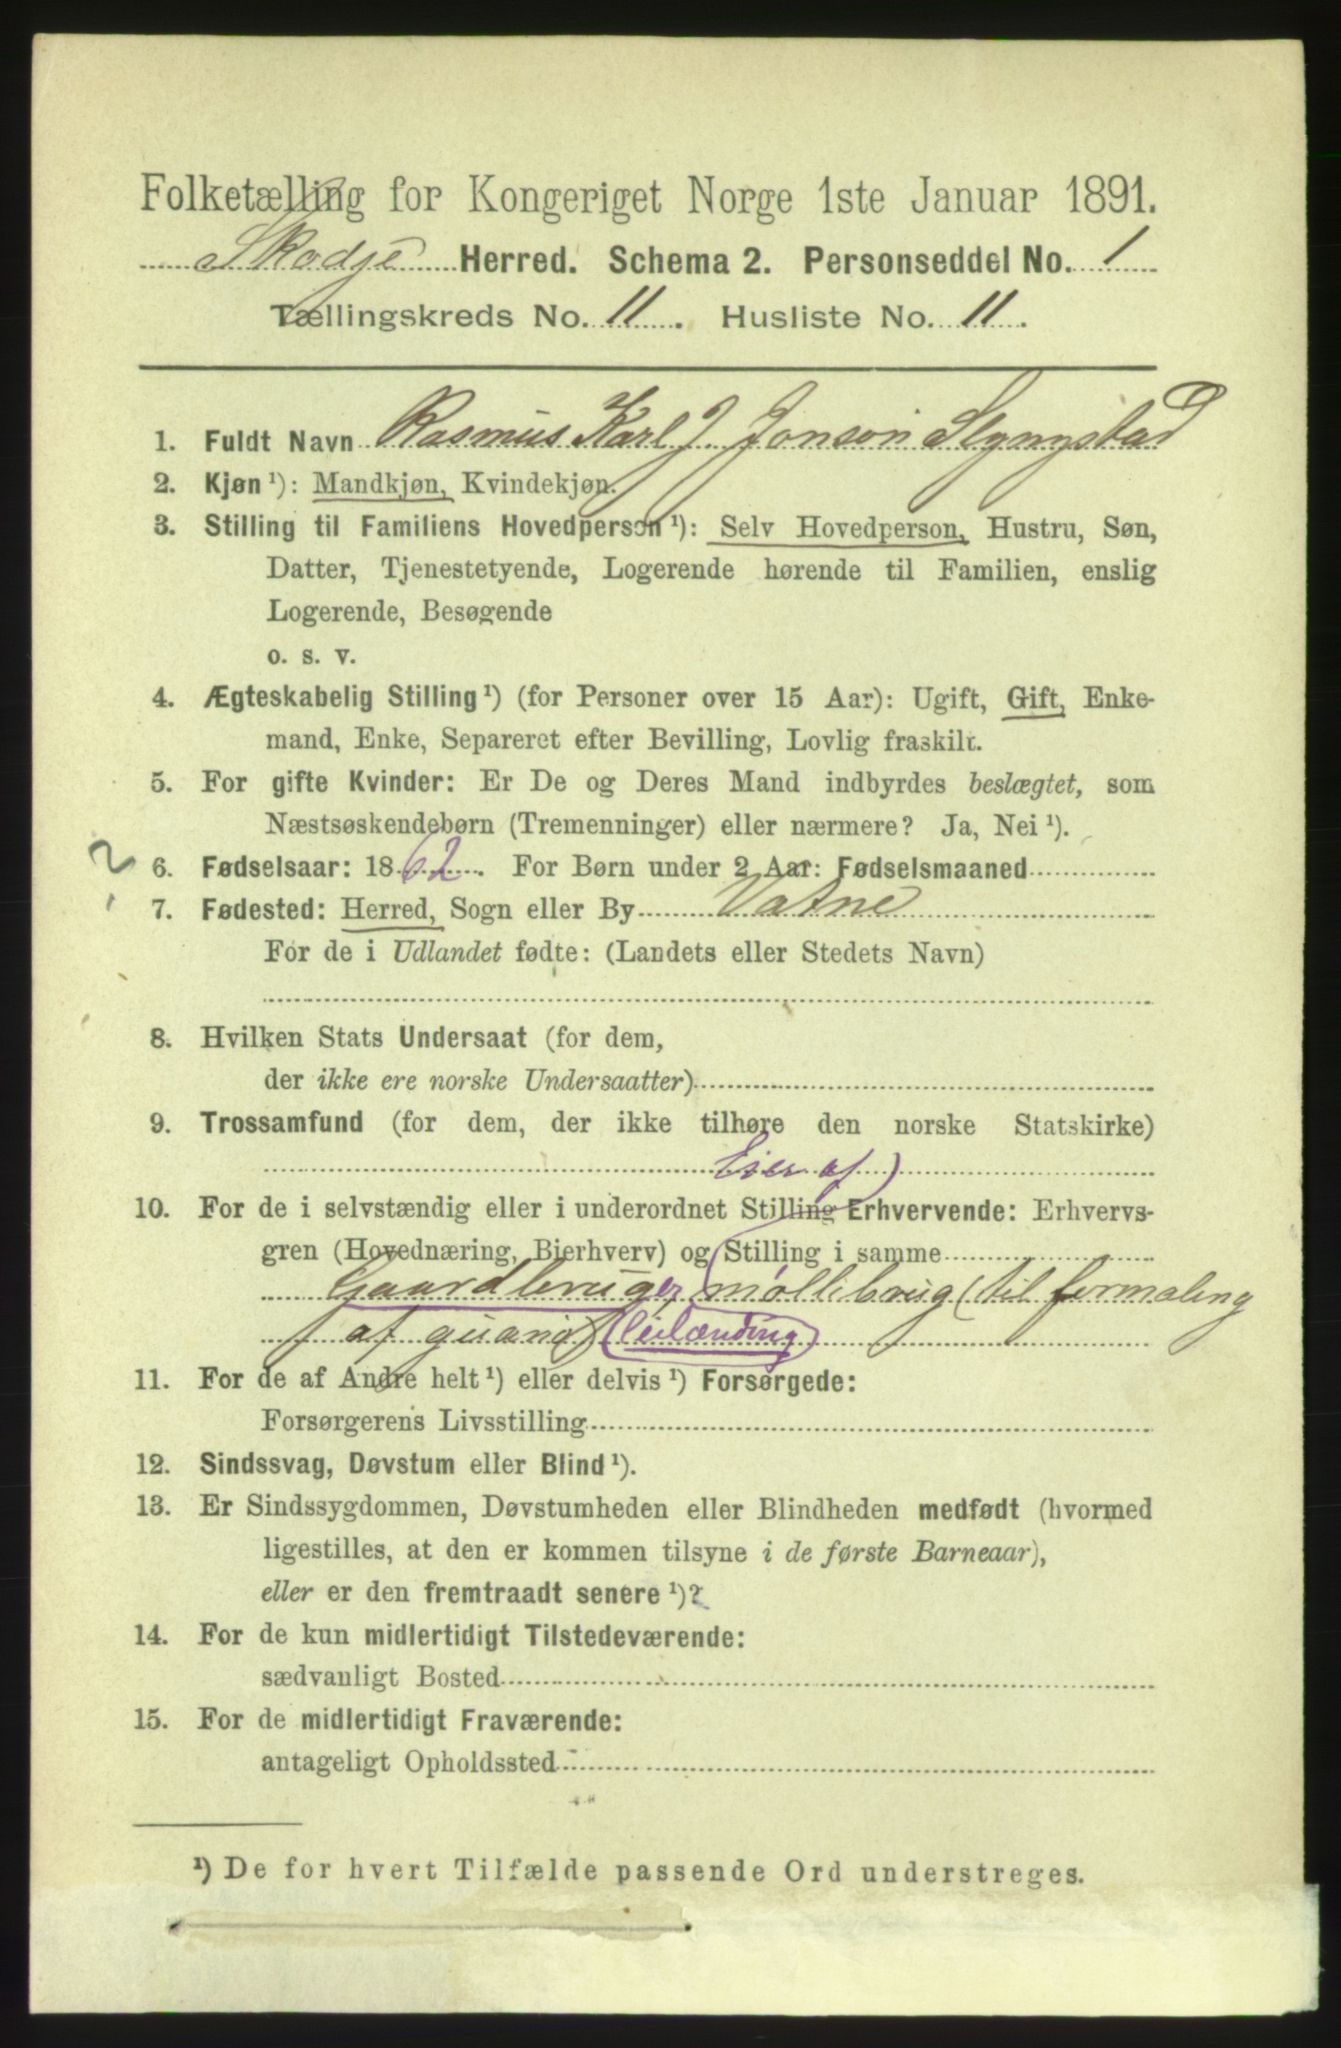 Folketælling for Kongeriget Norge 1ste Januar 1891.
Skodje Herred. Schema 2. Personseddel No. 1
Tællingskreds No. 11. Husliste No. 11.
1. Fuldt Navn Rasmus Karl J. Jonson Slyngstad
2. Kjøn ¹): Mandkjøn, Kvindekjøn.
3. Stilling til Familiens Hovedperson ¹): Selv Hovedperson, Hustru, Søn,
Datter, Tjenestetyende, Logerende hørende til Familien, enslig
Logerende, Besøgende
o. s. v.
4. Ægteskabelig Stilling ¹) (for Personer over 15 Aar): Ugift, Gift, Enke-
mand, Enke, Separeret efter Bevilling, Lovlig fraskilt.
5. For gifte Kvinder: Er De og Deres Mand indbyrdes beslægtet, som
Næstsøskendebørn (Tremenninger) eller nærmere? Ja, Nei ¹).
? 6. Fødselsaar: 1862. For Børn under 2 Aar: Fødselsmaaned
7. Fødested: Herred, Sogn eller By Vatne
For de i Udlandet fødte: (Landets eller Stedets Navn)
8. Hvilken Stats Undersaat (for dem,
der ikke ere norske Undersaatter)
9. Trossamfund (for dem, der ikke tilhøre den norske Statskirke)
Eier af
10. For de i selvstændig eller i underordnet Stilling Erhvervende: Erhvervs-
gren (Hovednæring, Bierhverv) og Stilling i samme
Gaardbruger, møllebrug (til formaling
af guano) (leilænding)
11. For de af Andre helt ¹) eller delvis ¹) Forsørgede:
Forsørgerens Livsstilling
12. Sindssvag, Døvstum eller Blind ¹).
13. Er Sindssygdommen, Døvstumheden eller Blindheden medfødt (hvormed
ligestilles, at den er kommen tilsyne i de første Barneaar),
eller er den fremtraadt senere ¹)?
14. For de kun midlertidigt Tilstedeværende:
sædvanligt Bosted
15. For de midlertidigt Fraværende:
antageligt Opholdssted
¹) De for hvert Tilfælde passende Ord understreges.